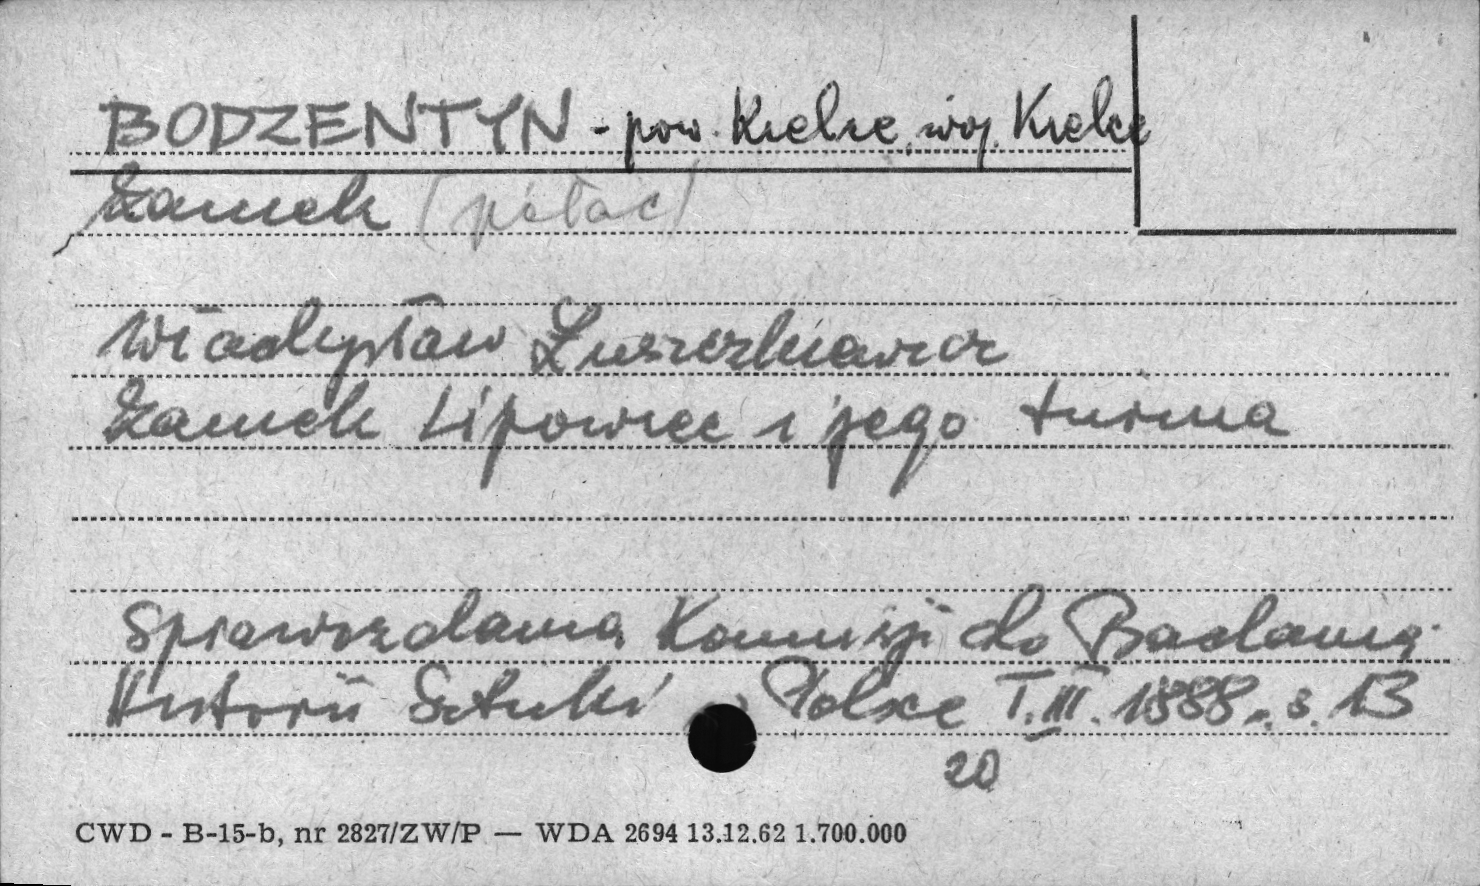 BODZENTYN - pow. Kielce, woj. Kielce
Zamek (pałac)
Władysław Łuszczkiewicz
Zamek Lipowiec i jego turma
Sprawozdania Komisji do Badania
Historii Sztuki w Polsce T. III. 1888. s. 13
20
CWD - B-15-b, nr 2827/ZW/P — WDA 2694 13.12.62 1.700.000